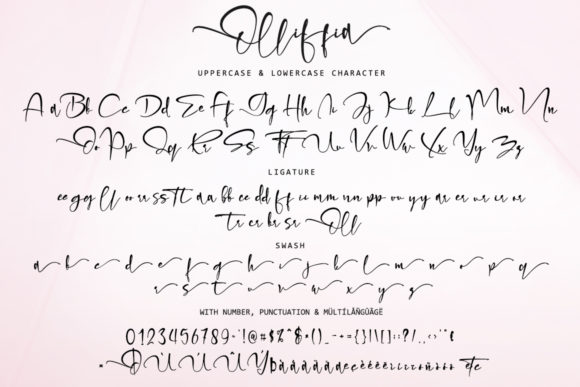 Olliffia
UPPERCASE & LOWERCASE CHARACTER
Aa Bb Cc Dd Ee Ff Gg Hh Ii Jj Kk Ll Mm Nn
Oo Pp Qq Rr Ss Tt Uu Vv Ww Xx Yy Zz
LIGATURE
ee gg ll oo rr ss tt aa bb cc dd ff ii mm nn pp uu yy ar er ur ir or
tr cr br sr Oll
SWASH
a b c d e f g h i j k l m n o p q
r s t u v w x y z
WITH NUMBER, PUNCTUATION & MÜLTÍLÀÑGÛÂGË
0123456789
etc